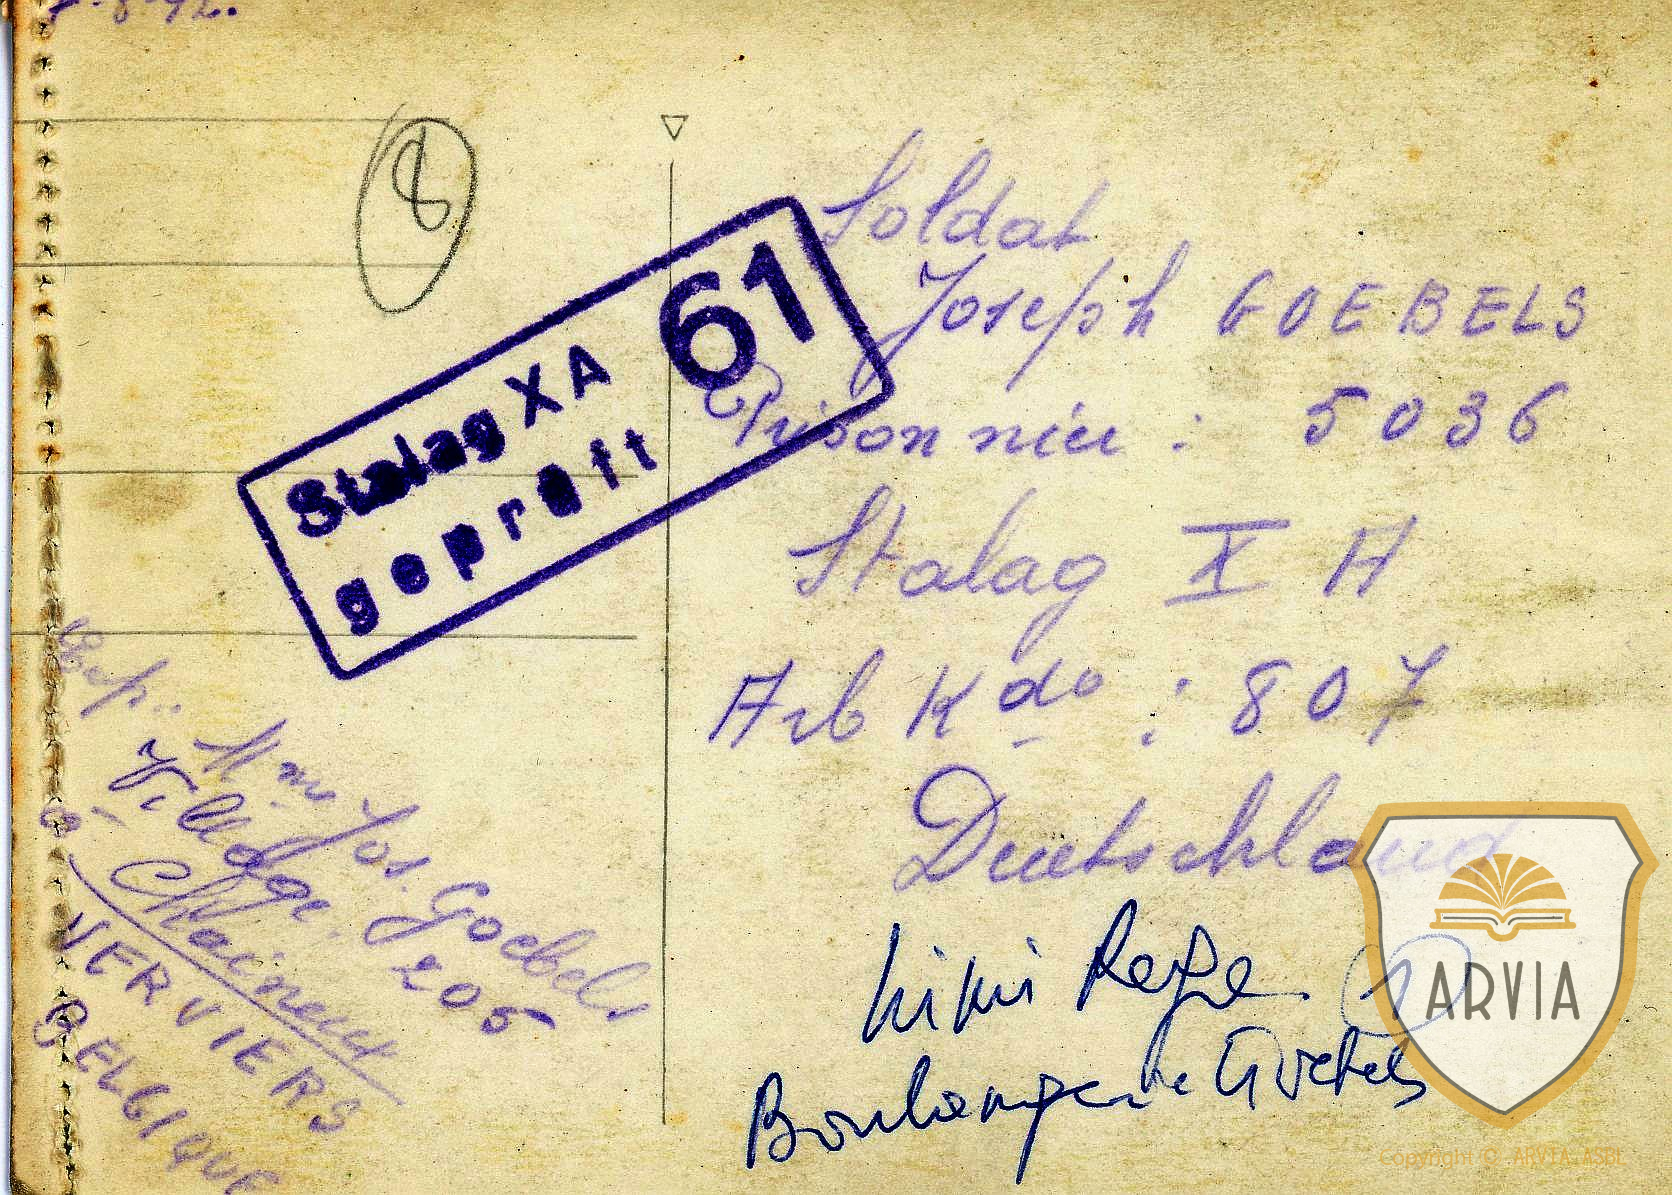 7-8-42.
8
Stalag XA 61
geprüft
Soldat
Joseph GOEBELS
Prisonnier : 5036
Stalag X A
Arb Kdo : 807
Deutschland
Exp.:
Mme Jos. Goebels
Village. 205
à Chaineux
VERVIERS
BELGIQUE
Boulangerie Goebels
ARVIA
Copyright © ARVIA ASBL